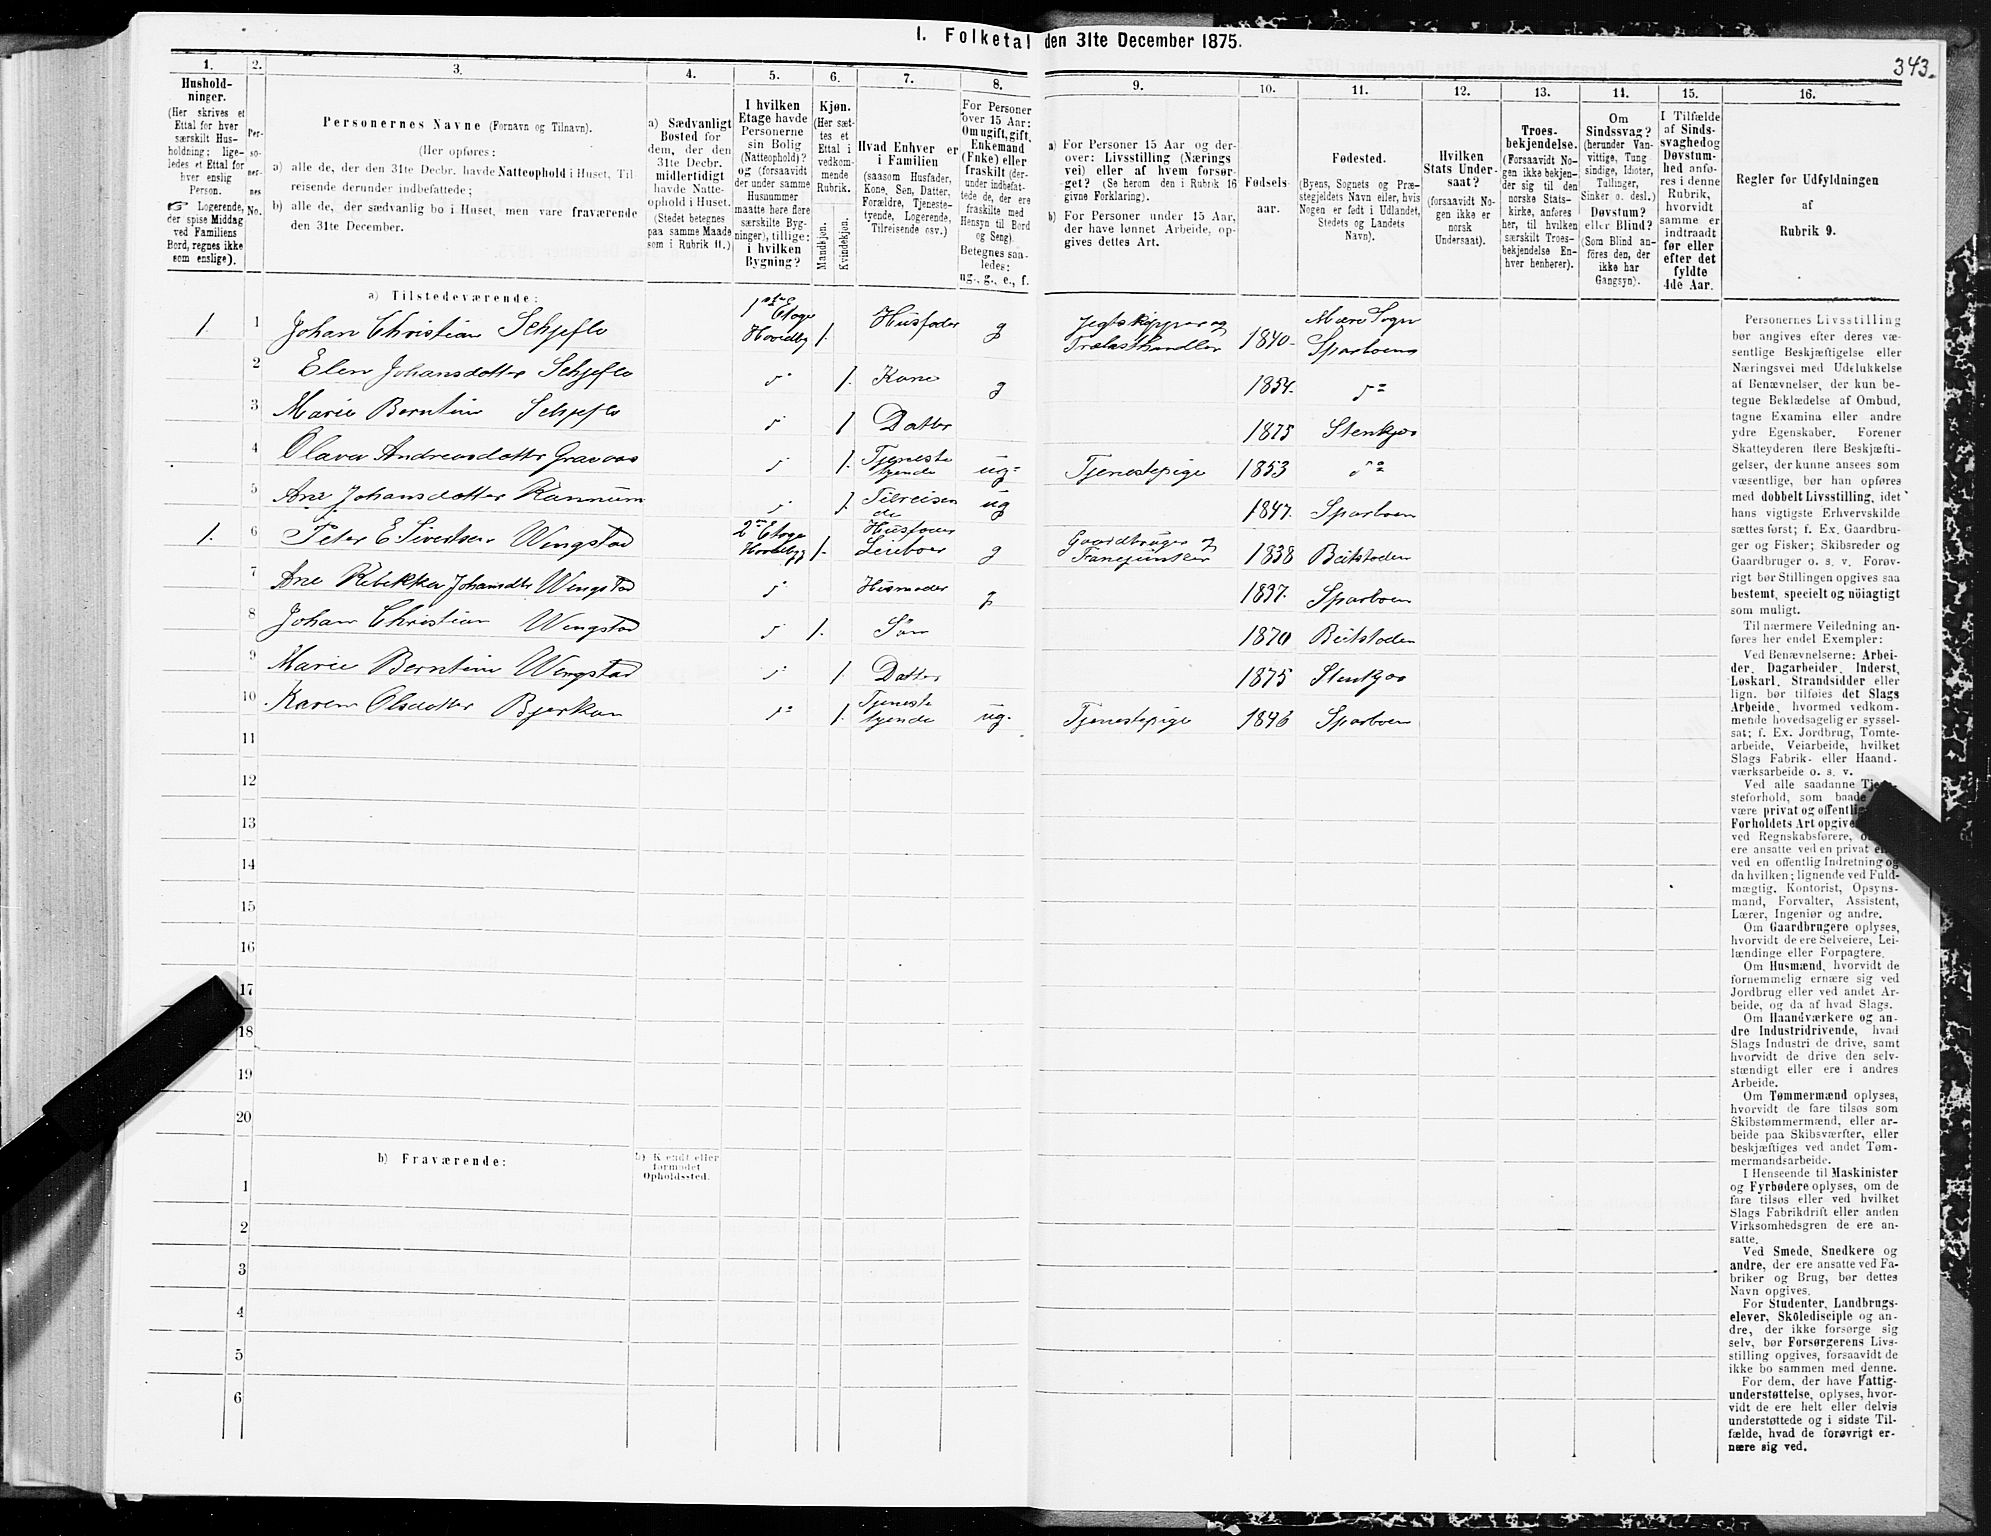 I. Folketal den 31te December 1875.
343.
1.
2.
3.
4.
5.
6.
7.
8.
9.
10.
11.
12.
13.
14.
15.
16.
Hushold-
ninger.
(Her skrives et
Ettal for hver
særskilt Hus-
holdning; lige-
ledes et Ettal for
hver enslig
Person.
☞ Logerende,
der spise Middag
ved Familiens
Bord, regnes ikke
som enslige).
Per-
so-
ner-
nes
No.
Personernes Navne (Fornavn og Tilnavn).
(Her opføres:
a) alle de, der den 31te Decbr. havde Natteophold i Huset, Til-
reisende derunder indbefattede;
b) alle de, der sædvanlig bo i Huset, men vare fraværende
den 31te December.
a) Sædvanligt
Bosted for
dem, der den
31te Decbr.
midlertidigt
havde Natte-
ophold i Huset.
(Stedet betegnes
paa samme Maade
som i Rubrik 11.)
I hvilken
Etage havde
Personerne
sin Bolig
(Natteophold)?
og (forsaavidt
der under samme
Husnummer
maatte høre flere
særskilte Byg-
ninger), tillige:
i hvilken
Bygning?
Kjøn.
(Her sæt-
tes et
Ettal i
vedkom-
mende
Rubrik.
Mandkjøn.
Kvindekjøn.
Hvad Enhver er
i Familien
(saasom Husfader,
Kone, Søn, Datter,
Forældre, Tjeneste-
tyende, Logerende,
Tilreisende osv.)
For Personer
over 15 Aar:
Om ugift, gift,
Enkemand
(Enke) eller
fraskilt (der-
under indbefat-
tede de, der ere
fraskilte med
Hensyn til Bord
og Seng).
Betegnes saa-
ledes:
ug., g., e., f.
a) For Personer 15 Aar og der-
over: Livsstilling (Nærings
vei) eller af hvem forsør-
get? (Se herom den i Rubrik 16
givne Forklaring).
b) For Personer under 15 Aar,
der have lønnet Arbeide, op-
gives dettes Art.
Fødsels-
aar.
Fødested.
(Byens, Sognets og Præ-
stegjeldets Navn eller, hvis
Nogen er født i Udlandet,
Stedets og Landets
Navn).
Hvilken
Stats Under-
saat?
(forsaavidt No-
gen ikke er
norsk
Undersaat).
Troes-
bekjendelse.
(Forsaavidt No-
gen ikke bekjen-
der sig til den
norske Stats-
kirke, anføres
her, til hvilken
særskilt Troes-
bekjendelse En-
hver henhører).
Om
Sindssvag?
(herunder Van-
vittige, Tung
sindige, Idioter,
Tullinger,
Sinker o. desl.)
Døvstum?
eller Blind?
(Som Blind an-
føres den, der
ikke har
Gangsyn).
I Tilfælde
af Sinds-
svaghed og
Døvstum-
hed anfø-
res i denne
Rubrik,
hvorvidt
samme er
indtraadt
før eller
efter det
fyldte
4de Aar.
Regler for Udfyldningen
af
Rubrik 9.
a) Tilstedeværende:
1. 1 Johan Christian Schjeflo 1ste Etage Hovedby 1. Husfader g Jegtskipper og Trælasthandler 1840. Mære Sogn Sparboen
2 Elen Johansdatter Schjeflo do 1. Kone g 1854. do
3 Marie Berntine Schjeflo do 1 Datter 1875 Stenkjær
4 Olava Andreasdatter do 1. Tjeneste tyende ug. Tjenestepige 1853 do
5 Ane Johansdatter do 1. Tilreisen de ug 1847. Sparboen
1. 6 Peter E Sivertsen Wengstad 2den Etage 1. Husfader Leiboer g Gaardbruger og 1838 Beitstaden
7 Ane Rebekka Johansdtr Wengstad do Husmoder g 1837. Sparboen
8 Johan Christian Wengstad do 1. Søn 1870 Beitstaden
9 Marie Berntine Wengstad do 1 Datter 1875 Stenkjær
10 Karen Olsdatter Bjerkan do 1. Tjeneste tyende ug. Tjenestepige 1846 Sparboen
11
12
13
14
15
16
17
18
19
20
b) Fraværende:
b) Kjendt eller
formodet
Opholdssted.
1
2
3
4
5
6
Personernes Livsstilling
bør angives efter deres væ-
sentlige Beskjæftigelse eller
Næringsvei med Udelukkelse
af Benævnelser, der kun be-
tegne Beklædelse af Ombud,
tagne Examina eller andre
ydre Egenskaber. Forener
Skatteyderen flere Beskjæfti-
gelser, der kunne ansees som
væsentlige, bør han opføres
med dobbelt Livsstilling, idet
hans vigtigste Erhvervskilde
sættes først; f. Ex. Gaardbru-
ger og Fisker; Skibsreder og
Gaardbruger o. s. v. Forøv-
rigt bør Stillingen opgives saa
bestemt, specielt og nöiagtigt
som muligt.
Til nærmere Veiledning an-
føres her endel Exempler:
Ved Benævnelserne: Arbei-
der, Dagarbeider, Inderst,
Løskarl, Strandsidder eller
lign. bør tilføies det Slags
Arbeide, hvormed vedkom-
mende hovedsagelig er syssel-
sat; f. Ex. Jordbrug, Tomte-
arbeide, Veiarbeide, hvilket
Slags Fabrik- eller Haand-
værksarbeide o. s. v.
Ved alle saadanne Tjene-
steforhold, som baade
være privat og offentlig
Forholdets Art opgives
ved Regnskabsførere,
ere ansatte ved en privat eller
ved en offentlig Indretning og
da hvilken; lignende ved Fuld-
mægtig, Kontorist, Opsyns-
mand, Forvalter, Assistent,
Lærer, Ingeniør og andre.
Om Gaardbrugere oplyses,
hvorvidt de ere Selveiere, Lei-
lændinge eller Forpagtere.
Om Husmænd, hvorvidt de
fornemmelig ernære sig ved
Jordbrug eller ved andet Ar-
beide, og da af hvad Slags.
Om Haandværkere og an-
dre Industridrivende, hvad
Slags Industri de drive, samt
hvorvidt de drive den selv-
stændigt eller ere i andres
Arbeide.
Om Tømmermænd oplyses,
hvorvidt de fare tilsøs som
Skibstømmermænd, eller ar-
beide paa Skibsværfter, eller
beskjæftiges ved andet Tøm-
mermandsarbeide.
I Henseende til Maskinister
og Fyrbødere oplyses, om de
fare tilsøs eller ved hvilket
Slags Fabrikdrift eller anden
Virksomhedsgren de ere an-
satte.
Ved Smede, Snedkere og
andre, der ere ansatte ved Fa-
briker og Brug, bør dettes
Navn opgives.
For Studenter, Landbrugs-
elever, Skôledisciple og an-
dre, der ikke forsørge sig
selv, bør Forsørgerens Livs-
stilling opgives, forsaavidt de
ikke bo sammen med denne.
For dem, der have Fattig-
understøttelse, oplyses, hvor-
vidt de ere helt eller delvis
understøttede og i sidste Til-
fælde, hvad de forøvrigt er-
nære sig ved.